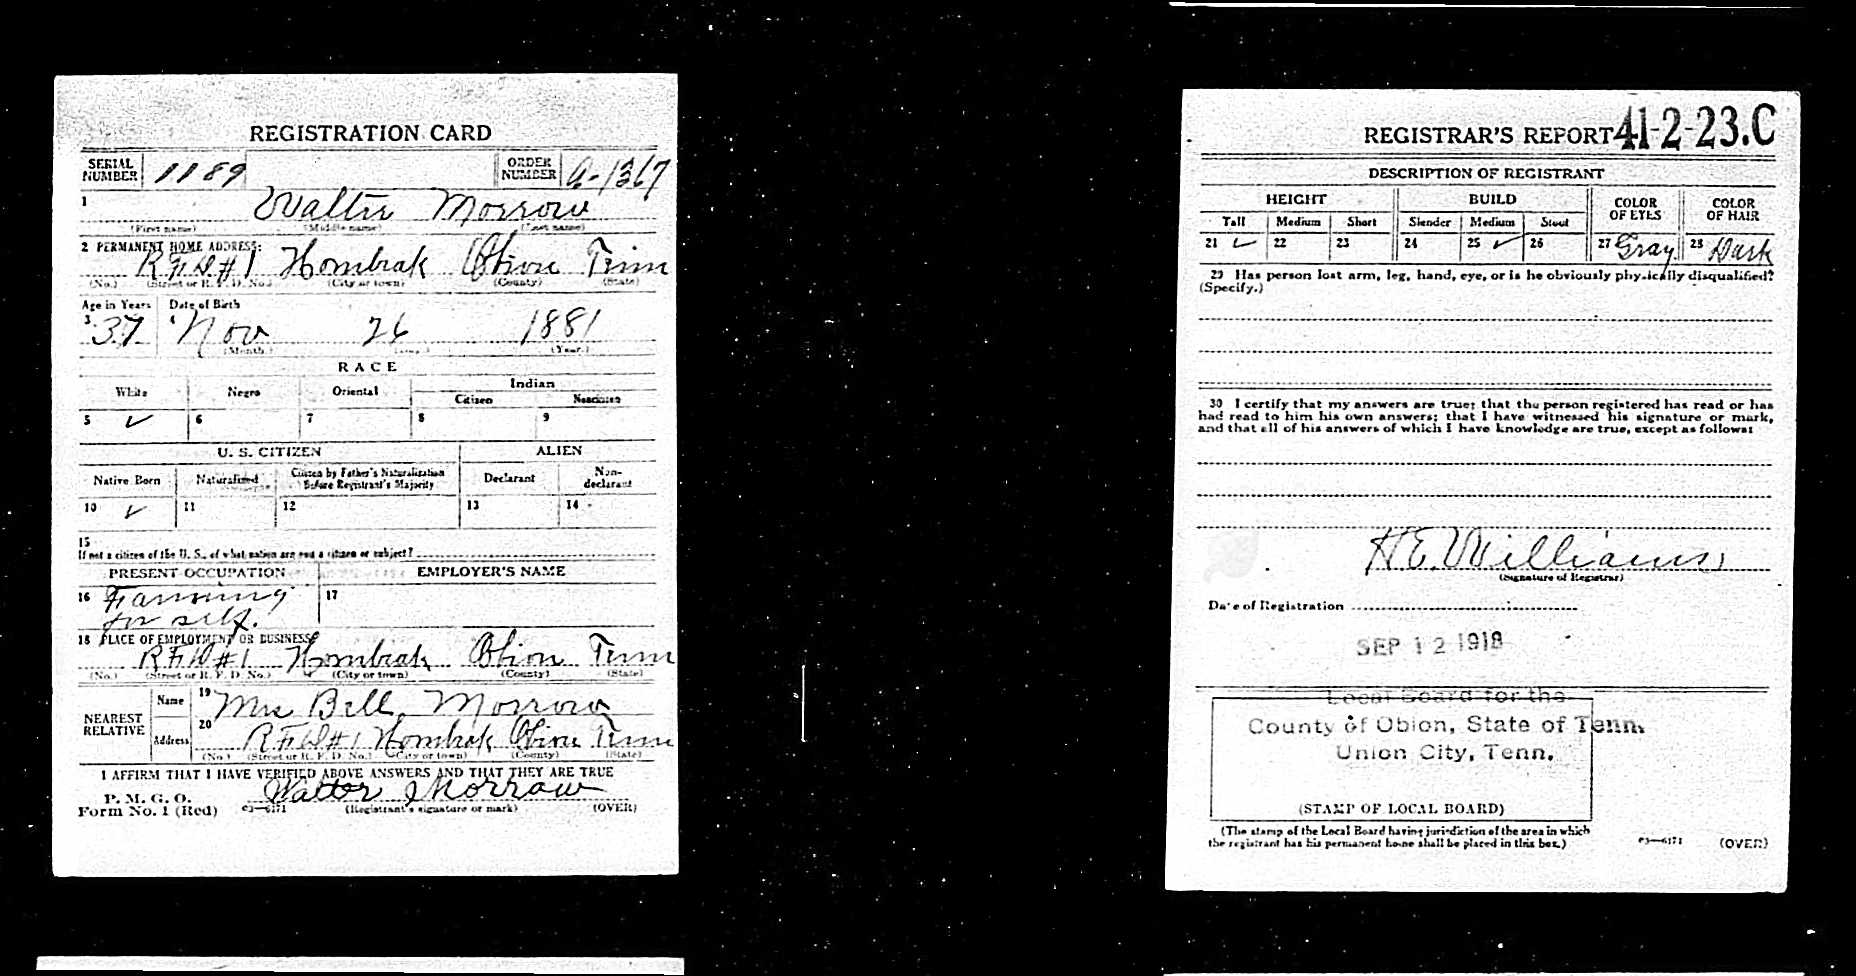 REGISTRATION CARD
SERIAL NUMBER 1189 ORDER NUMBER a-1367
1 Walter Morrow
(First name) (Middle name) (Last name)
2 PERMANENT HOME ADDRESS:
R F D #1 Hornbeak Obion Tenn
(No.) (Street or R. F. D. No.) (City or town) (County) (State)
Age in Years Date of Birth
3 37 4 Nov 26 1881
(Month.) (Day.) (Year.)
RACE
White Negro Oriental Indian
Citizen Noncitizen
5 ✓ 6 7 8 9
U. S. CITIZEN ALIEN
Native Born Naturalized Citizen by Father's Naturalization Before Registrant's Majority Declarant Non-declarant
10 ✓ 11 12 13 14 -
15
If not a citizen of the U. S., of what nation are you a citizen or subject?
PRESENT OCCUPATION EMPLOYER'S NAME
16 Farming 17
for self.
18 PLACE OF EMPLOYMENT OR BUSINESS:
R F D #1 Hornbeak Obion Tenn
(No.) (Street or R. F. D. No.) (City or town) (County) (State)
NEAREST RELATIVE Name 19 Mrs Bell Morrow
Address 20 R F D #1 Hornbeak Obion Tenn
(No.) (Street or R. F. D. No.) (City or town) (County) (State)
I AFFIRM THAT I HAVE VERIFIED ABOVE ANSWERS AND THAT THEY ARE TRUE
P. M. G. O.
Form No. 1 (Red) 03—6171 Walter Morrow
(Registrant's signature or mark) (OVER)
REGISTRAR'S REPORT 41-2-23.C
DESCRIPTION OF REGISTRANT
HEIGHT BUILD COLOR OF EYES COLOR OF HAIR
Tall Medium Short Slender Medium Stout
21 ✓ 22 23 24 25 ✓ 26 27 Gray 28 Dark
29 Has person lost arm, leg, hand, eye, or is he obviously physically disqualified?
(Specify.)
30 I certify that my answers are true; that the person registered has read or has
had read to him his own answers; that I have witnessed his signature or mark,
and that all of his answers of which I have knowledge are true, except as follows:
H E. Williams
(Signature of Registrar)
Date of Registration
SEP 12 1918
Local Board for the
County of Obion, State of Tenn.
Union City, Tenn.
(STAMP OF LOCAL BOARD)
(The stamp of the Local Board having jurisdiction of the area in which
the registrant has his permanent home shall be placed in this box.)
03—6171 (OVER)